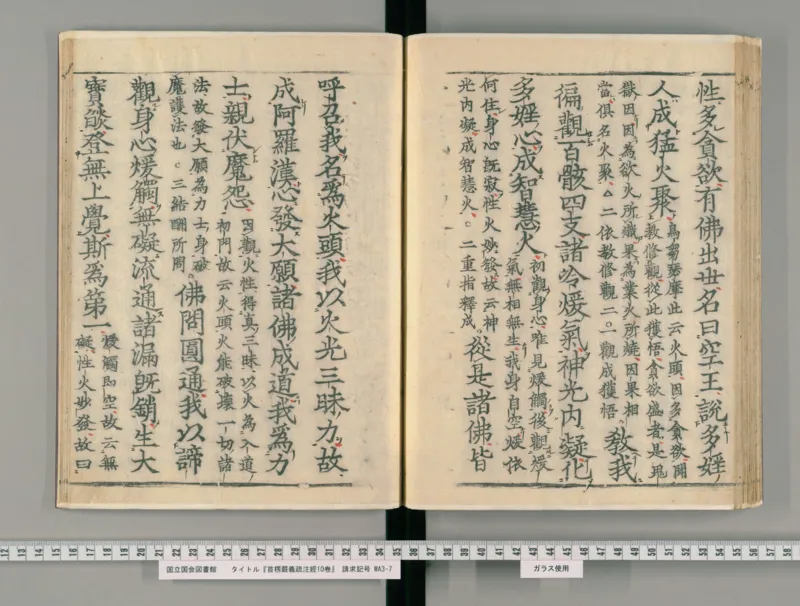 性多貪欲有佛出世名曰空王說多婬
人成猛火聚
烏芻瑟摩此云火頭因多貪欲聞
教修觀從此獲悟貪欲盛者是鬼
獄因因為欲火所熾果為業火所燒因果相
當俱名火聚△二依教修觀二○一觀成獲悟
教我
徧觀百骸四支諸冷煖氣神光內凝化
多婬心成智慧火
初觀身心唯見煖觸後觀煖
氣無相無生我身自空煖依
何住身心既寂性火煥發故云神
光內凝成智慧火○二重指釋成
從是諸佛皆
呼召我名爲火頭我以火光三昧力故
成阿羅漢心發大願諸佛成道我爲力
士親伏魔怨
因觀火性得真三昧以火為入道
初門故云火頭火能破壞一切諸
法故發大願為力士身破
魔護法也○三結酬所問
佛問圓通我以諦
觀身心煖觸無礙流通諸漏既銷生大
寶燄登無上覺斯爲第一
煖觸即空故云無
礙性火妙發故曰
国立国会図書館 タイトル『首楞嚴義疏注經10巻』 請求記号 WA3-7
ガラス使用